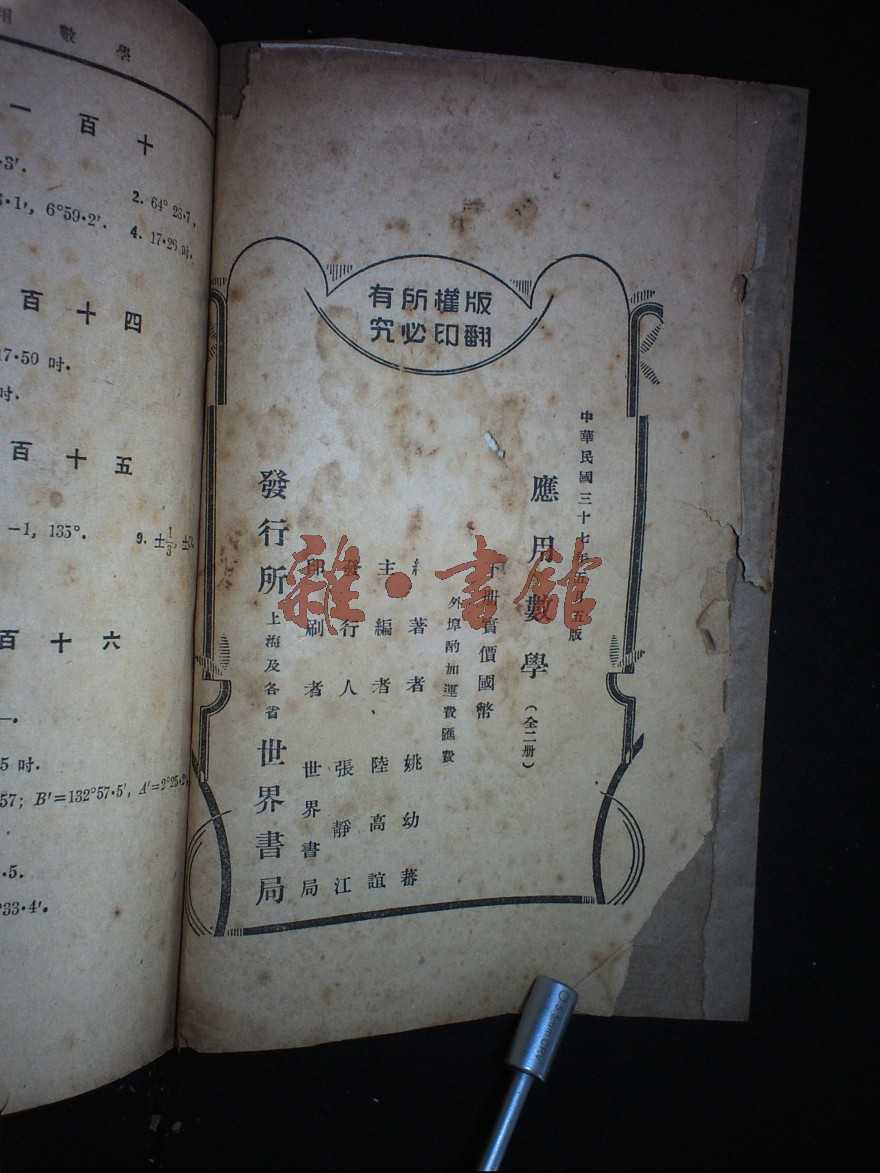 版權所有
翻印必究
中華民國三十七年五月五版
應用數學(全二册)
下册實價國幣
外埠酌加運費匯費
編著者 姚幼蕃
主編者 陸高誼
發行人 張靜江
印刷者 世界書局
發行所 上海及各省 世界書局
用數學
一百十
·3′.
2. 64° 23·7
·1′, 6°59·2′.
4. 17·29 吋.
百十四
17·50 吋.
吋.
百十五
−1, 135°.
9. ±1/3,
百十六
5 吋.
57; B′=132°57·5′, A′=2°25·2
·5.
°33·4′.
雜·書館